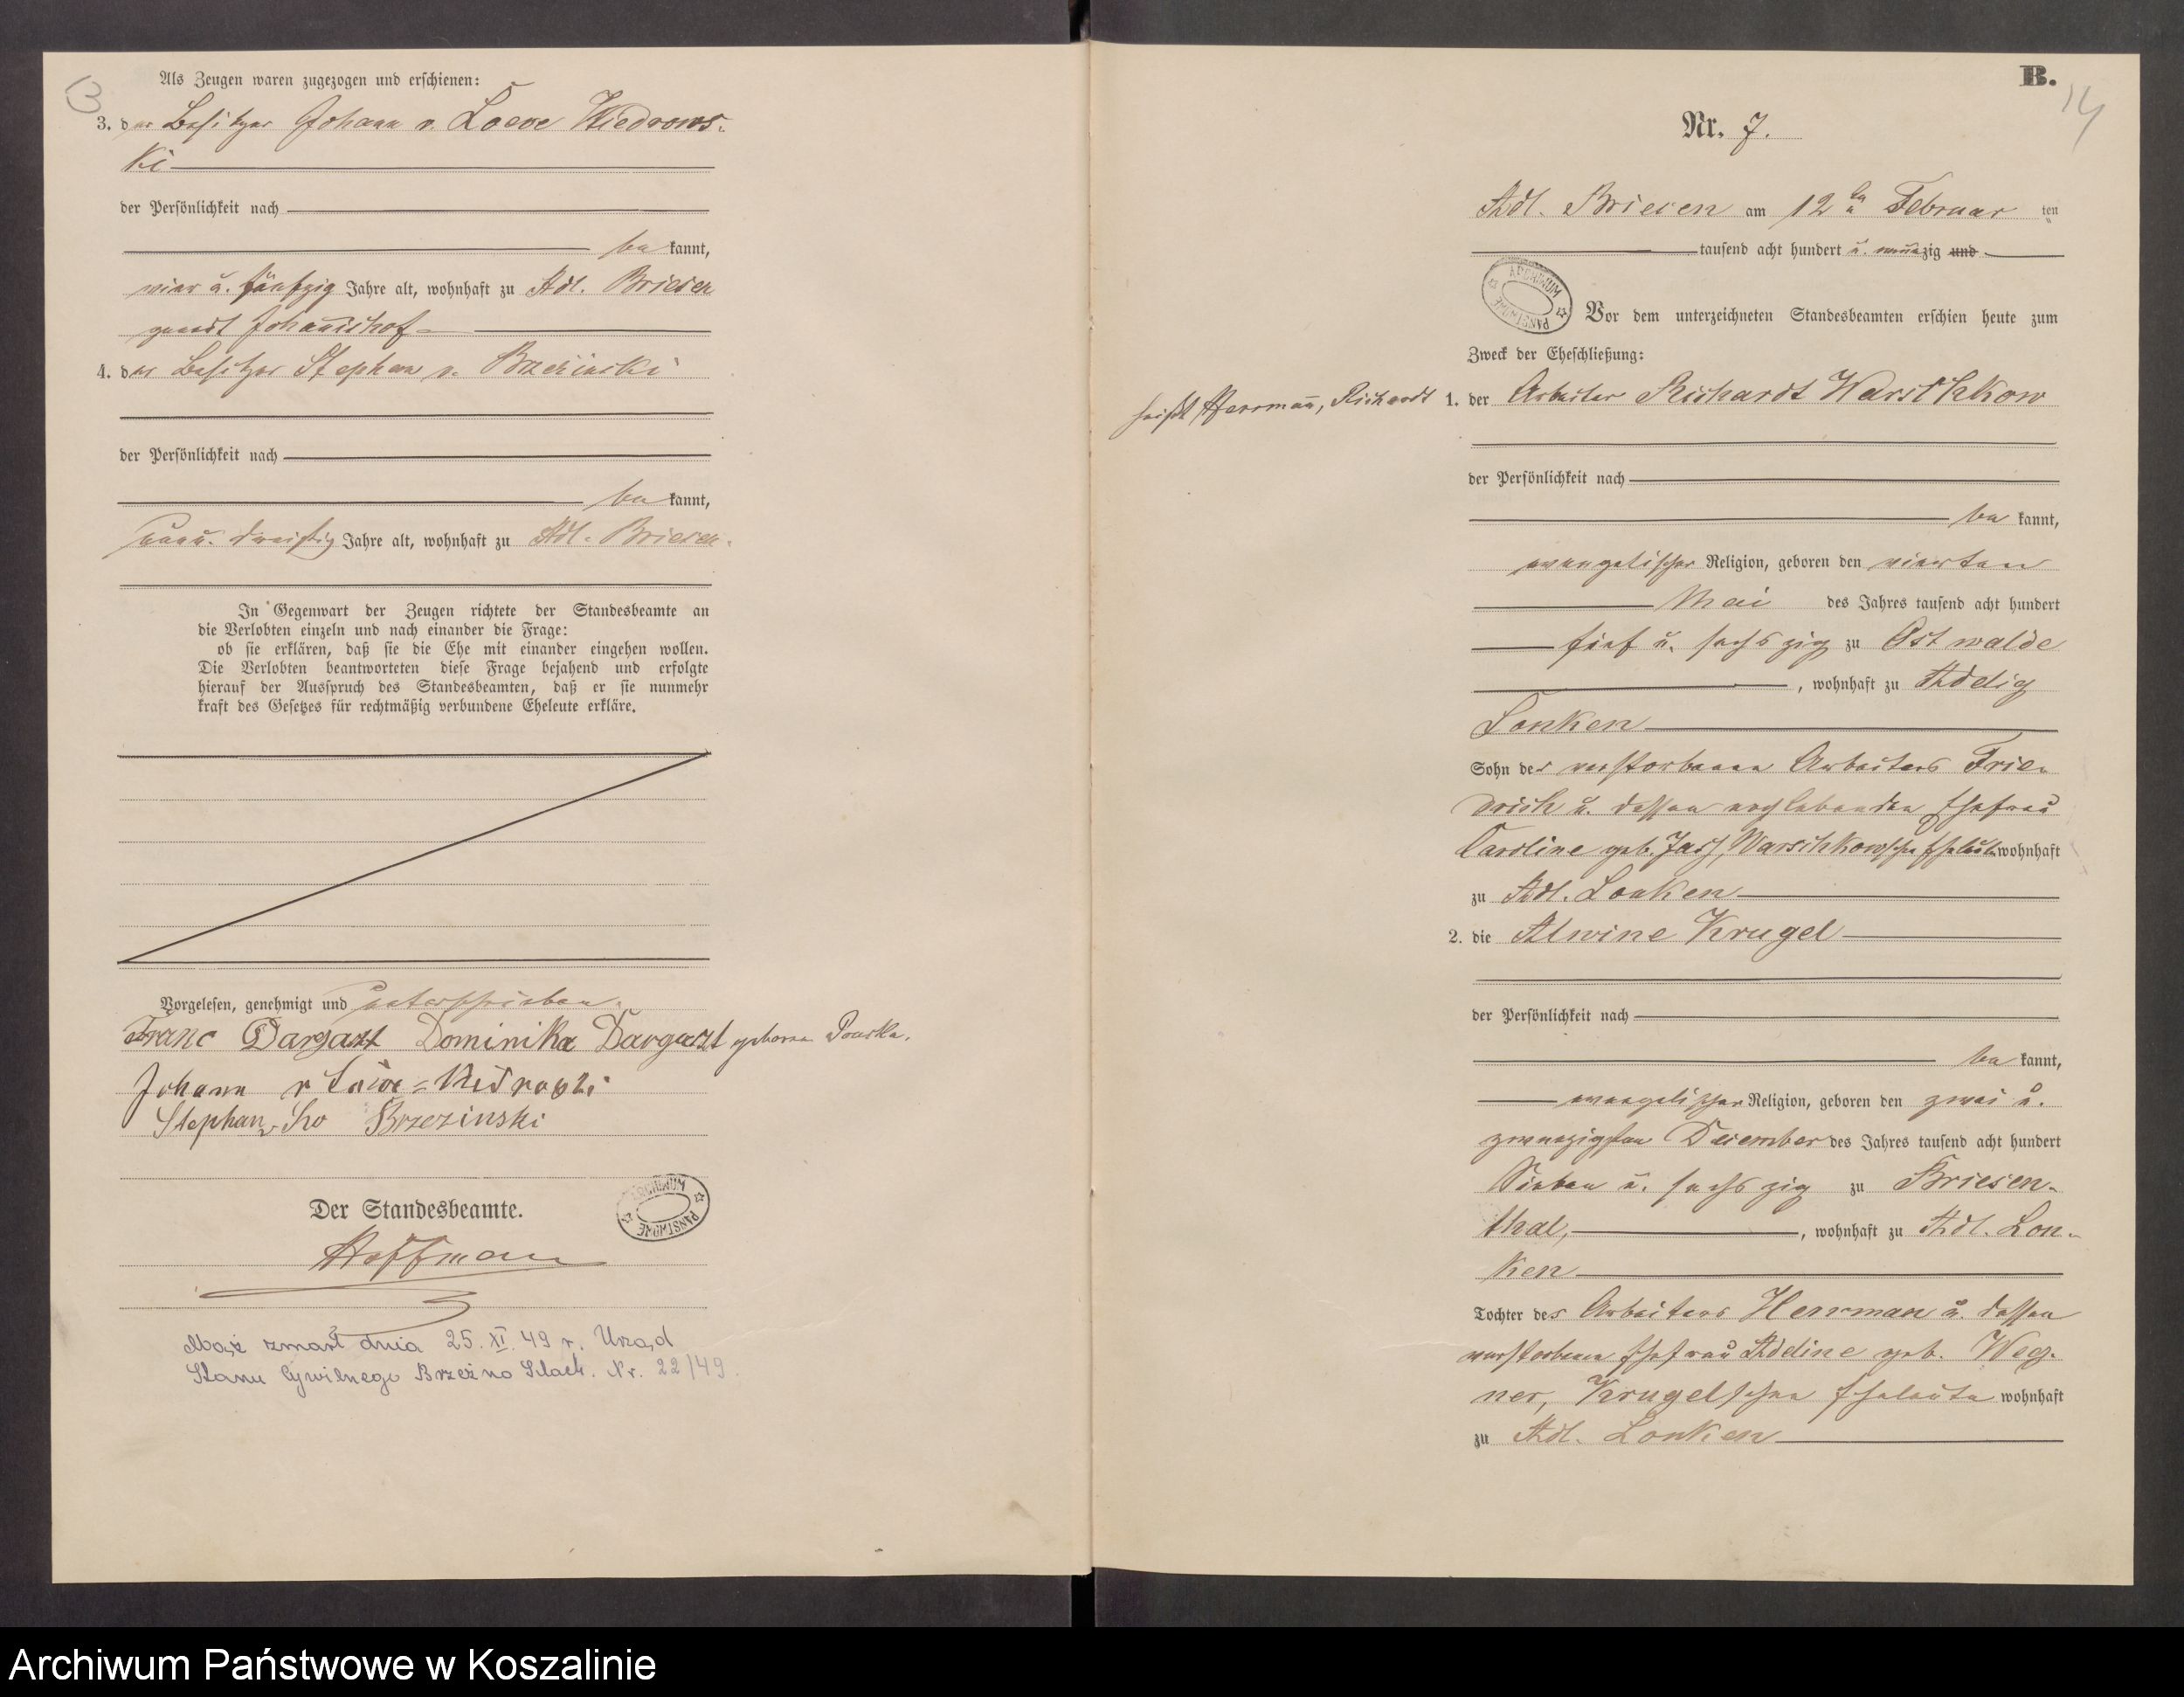 Als Zeugen waren zugezogen und erschienen:
3. der Besitzer Johann v. Loeve Wiedrows-
ki
der Persönlichkeit nach
be kannt,
vier u. fünfzig Jahre alt, wohnhaft zu Adl. Briesen
genant Johannishof
4. der Besitzer Stephan v. Brzezinski
der Persönlichkeit nach
be kannt,
dreißig Jahre alt, wohnhaft zu Adl. Briesen.
In Gegenwart der Zeugen richtete der Standesbeamte an
die Verlobten einzeln und nach einander die Frage:
ob sie erklären, daß sie die Ehe mit einander eingehen wollen.
Die Verlobten beantworteten diese Frage bejahend und erfolgte
hierauf der Ausspruch des Standesbeamten, daß er sie nunmehr
kraft des Gesetzes für rechtmäßig verbundene Eheleute erkläre.
Vorgelesen, genehmigt und unterschrieben.
Franc Dargatz Dominika Dargatz geborne
Johann v
Stephan Brzezinski
Der Standesbeamte.
Hoffman
ARCHIWUM PAŃSTWOWE
Mąż zmarł dnia 25. XI. 49 r. Urząd
Stanu Cywilnego Brzeźno Szlach. Nr. 22/49.
B.
14
Nr. 7.
Adl. Briesen am 12ten Februar ten
tausend acht hundert u. neunzig und
ARCHIWUM PAŃSTWOWE
Vor dem unterzeichneten Standesbeamten erschien heute zum
Zweck der Eheschließung:
heißt Herrmann, Richardt
1. der Arbeiter Richardt Warschkow
der Persönlichkeit nach
be kannt,
evangelischer Religion, geboren den vierten
Mai des Jahres tausend acht hundert
fünf u. sechszig zu Ostwalde
, wohnhaft zu Adelig
Lonken
Sohn des verstorbenen Arbeiters Frie-
drich u. dessen nochlebenden Ehefrau
Caroline geb. Warschkowschen Eheleute wohnhaft
zu Adl. Lonken
2. die Alwine Krugel
der Persönlichkeit nach
be kannt,
evangelischer Religion, geboren den zwei u.
zwanzigsten December des Jahres tausend acht hundert
Sieben u. sechszig zu Briesen-
thal, , wohnhaft zu Adl. Lon-
ken
Tochter des Arbeiters Herrman u. dessen
verstorbenen Ehefrau Adeline geb. Weg-
ner, Krugelschen Eheleute wohnhaft
zu Adl. Lonken
Archiwum Państwowe w Koszalinie